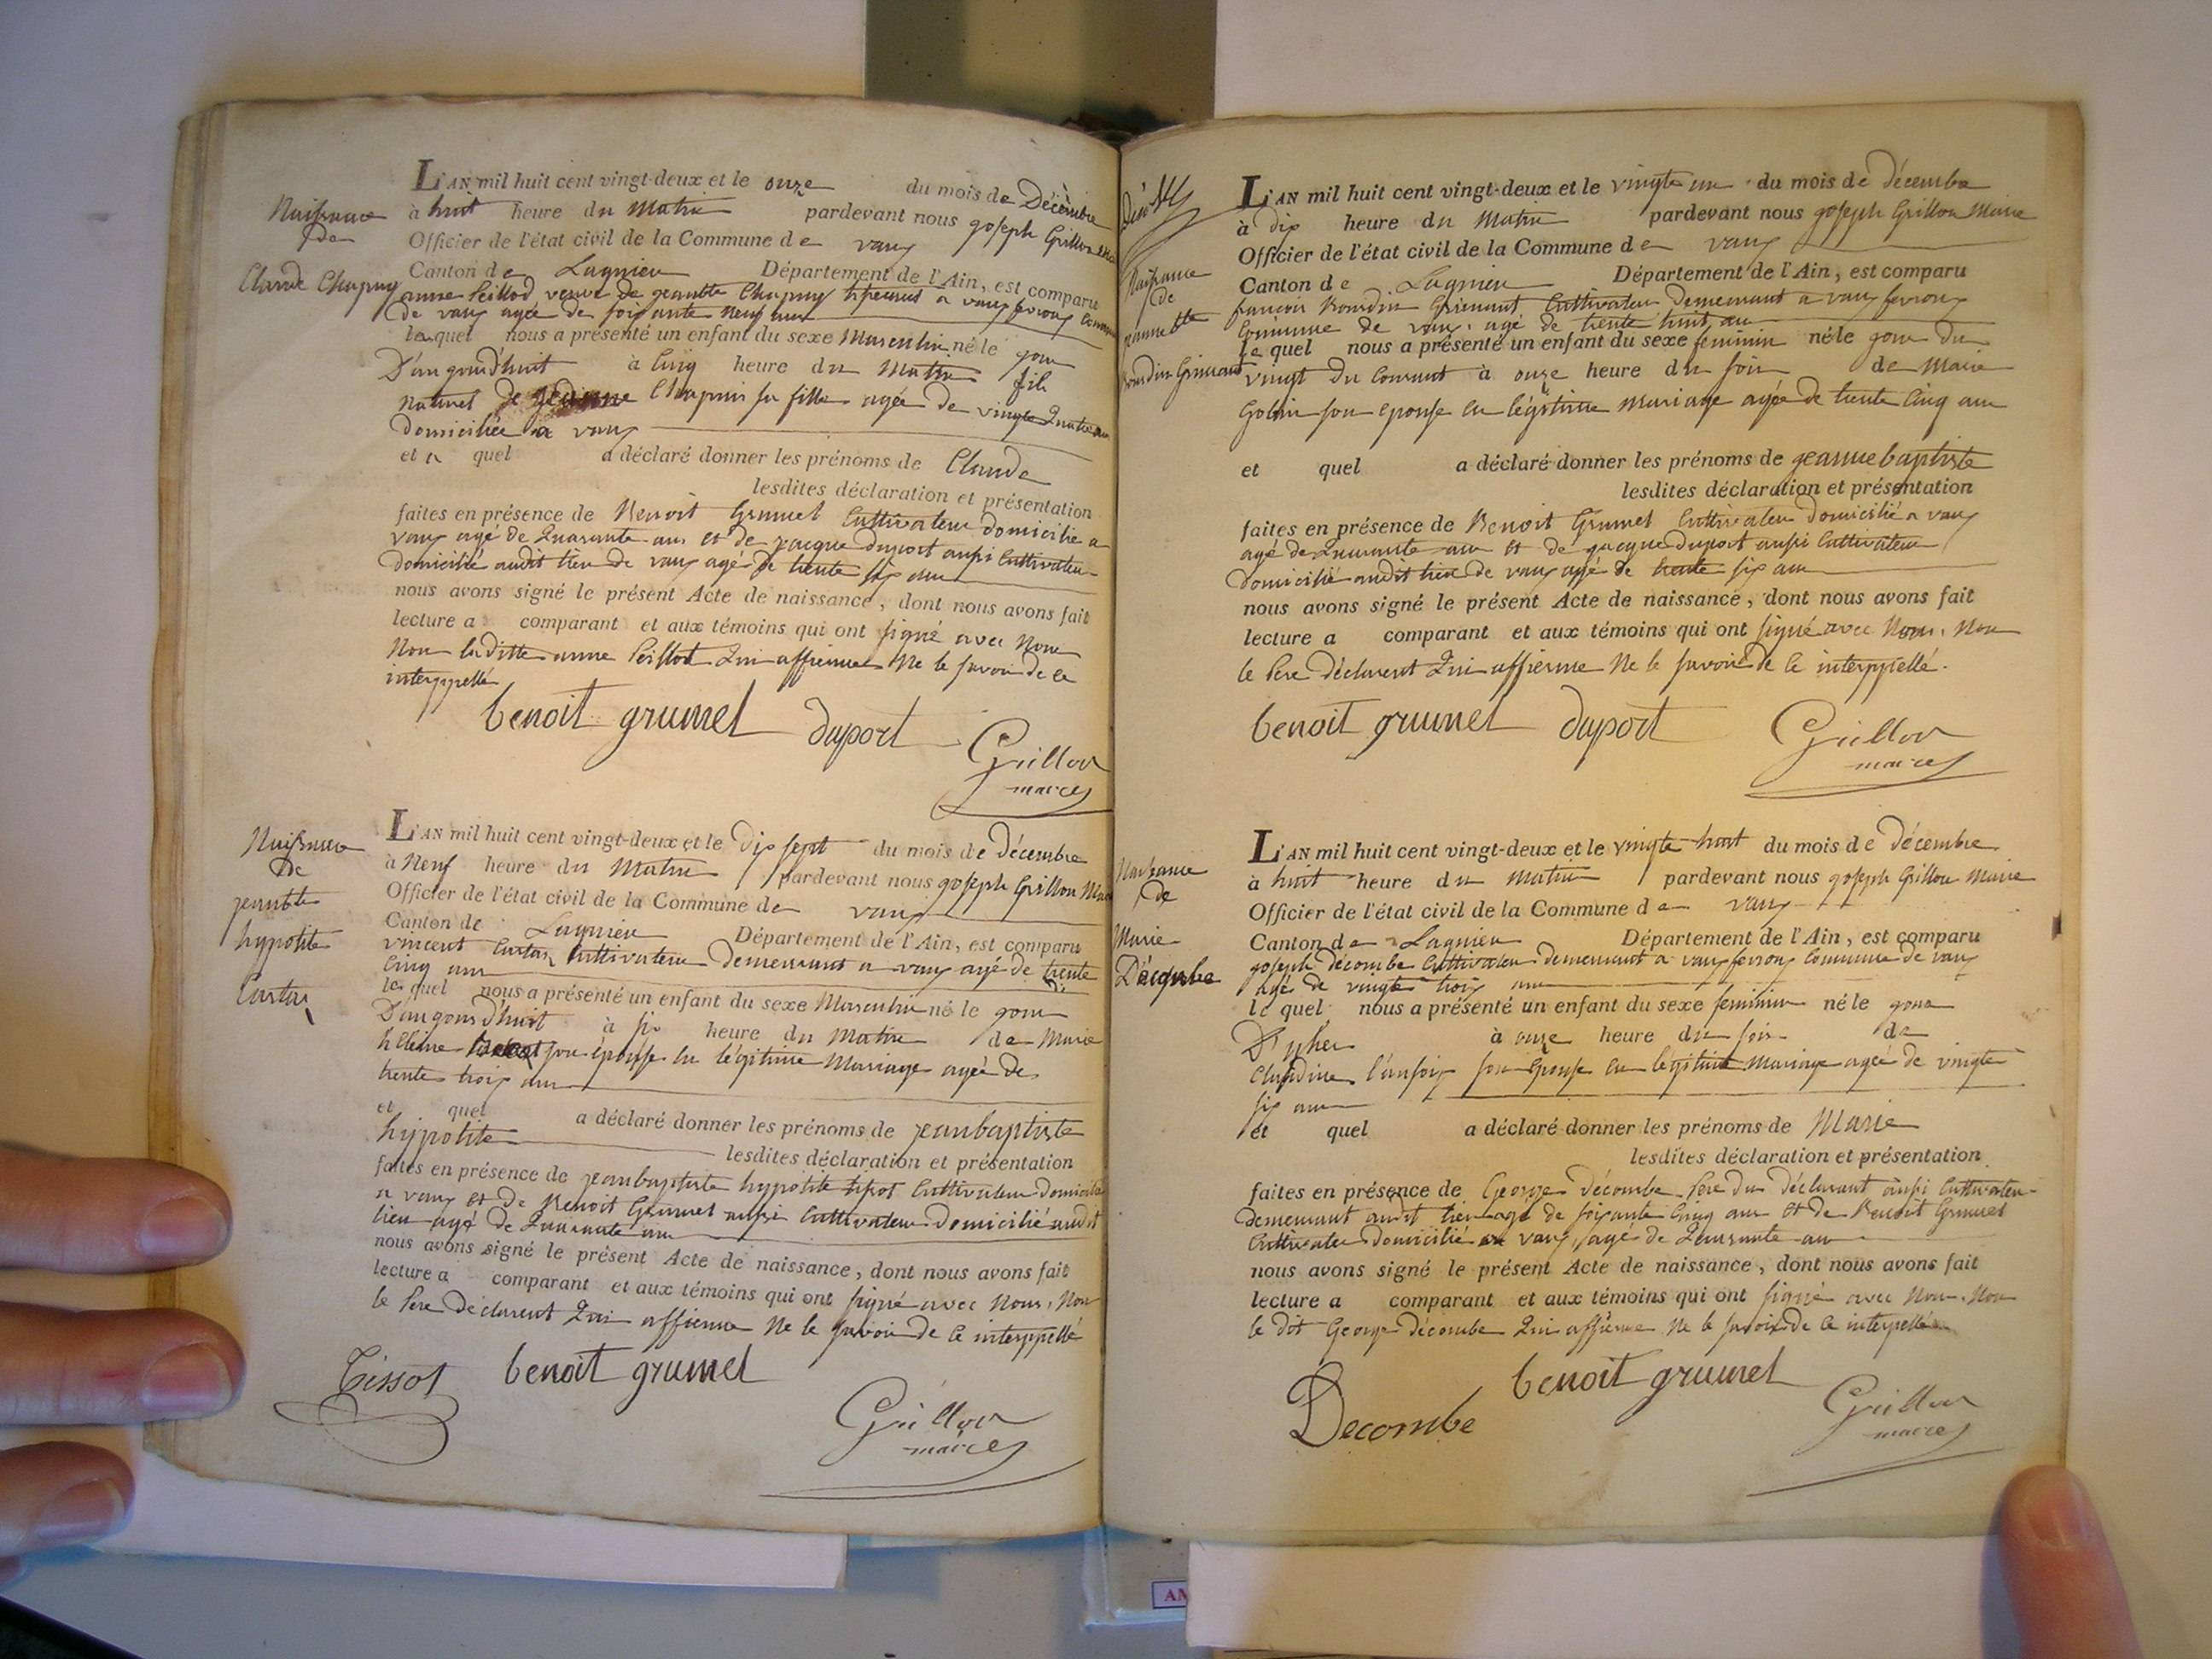 Naissance
de
Claude Chapuy
L'AN mil huit cent vingt-deux et le onze du mois de Décembre
à huit heure du Matin pardevant nous joseph Grillon
Officier de l'état civil de la Commune de vaux
Canton de Lagnieu Département de l'Ain, est comparu
anne Peillod veuve de jeanbte Chapuy a vaux fevroux
de vaux agée de soixante neuf ans
lequel nous a présenté un enfant du sexe Masculin né le jour
D'aujourd'huit à Cinq heure du Matin fils
naturel de Chapuis sa fille agée de vingte Quatre ans
domiciliée a vaux
et a quel a déclaré donner les prénoms de Claude
lesdites déclaration et présentation
faites en présence de Benoit Grumel Cultivateur domicilié a
vaux agé de Quarante ans et de jacque duport aussi Cultivateur
domicilié audit lieu de vaux agé de trente six ans
nous avons signé le présent Acte de naissance, dont nous avons fait
lecture a comparant et aux témoins qui ont signé avec Nous
Non laditte anne Peillod Qui affierme Ne le savoir de ce
interppellé
benoit grumel duport Grillon
maire
Naissance
de
jeanbte
hypolite
L'AN mil huit cent vingt-deux et le Dix sept du mois de décembre
à Neuf heure du Matin pardevant nous joseph Grillon
Officier de l'état civil de la Commune de vaux
Canton de Lagnieu Département de l'Ain, est comparu
vincent Cultivateur demeurant a vaux agé de trente
Cinq ans
lequel nous a présenté un enfant du sexe Masculin né le jour
D'aujourd'huit à six heure du Matin de Marie
héleine son épouse en légitime Mariage agée de
trente trois ans
et quel a déclaré donner les prénoms de jeanbaptiste
hypolite
lesdites déclaration et présentation
faites en présence de jeanbaptiste hypolite tisot Cultivateur domicilié
a vaux et de Benoit Grumel aussi Cultivateur Domicilié audit
lieu agé de Quarante ans
nous avons signé le présent Acte de naissance, dont nous avons fait
lecture a comparant et aux témoins qui ont signé avec Nous, Non
le Pere déclarent Qui affierme Ne le savoir de ce interppellé
Tissot benoit grumel
Grillon
maire
Naissance
de
jeannebtte
L'AN mil huit cent vingt-deux et le vingte un du mois de décembre
à dix heure du Matin pardevant nous joseph Grillon Maire
Officier de l'état civil de la Commune de vaux
Canton de Lagnieu Département de l'Ain, est comparu
françois Bourdin Cultivateur demeurant a vaux fevroux
Commune de vaux, agé de trente huit ans
Le quel nous a présenté un enfant du sexe feminin né le jour du
vingt du Courant à onze heure du soir de Marie
son épouse en légitime Mariage agée de trente Cinq ans
et quel a déclaré donner les prénoms de jeannebaptiste
lesdites déclaration et présentation
faites en présence de Benoit Grumel Cultivateur domicilié a vaux
agé de Quarante ans et de jacque duport aussi Cultivateur
domicilié audit lieu de vaux agé de trente six ans
nous avons signé le présent Acte de naissance, dont nous avons fait
lecture a comparant et aux témoins qui ont signé avec Nous, Non
le Pere déclarent Qui affierme Ne le savoir de ce interppellé.
benoit grumel duport Grillon
maire
Naissance
de
Marie
Décombe
L'AN mil huit cent vingt-deux et le vingte huit du mois de décembre
à huit heure du matin pardevant nous joseph Grillon Maire
Officier de l'état civil de la Commune de vaux
Canton de Lagnieu Département de l'Ain, est comparu
joseph décombe Cultivateur demeurant a vaux fevroux Commune de vaux
agé de vingte trois ans
le quel nous a présenté un enfant du sexe feminin né le jour
D'yher à onze heure du soir de
Claudine son Epouse en légitime Mariage agée de vingte
six ans
et quel a déclaré donner les prénoms de Marie
lesdites déclaration et présentation
faites en présence de George décombe Pere du déclarant aussi Cultivateur
demeurant audit lieu agé de soixante Cinq ans et de Benoit Grumel
Cultivateur domicilié a vaux, agé de Quarante ans
nous avons signé le présent Acte de naissance, dont nous avons fait
lecture a comparant et aux témoins qui ont signé avec Nous, Non
le dit George décombe Qui affierme Ne le savoir de ce interpellé
Decombe benoit grumel Grillon
maire